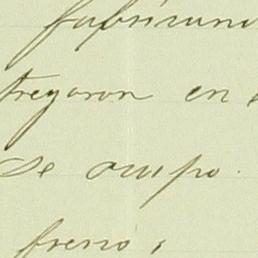 fabricand
tregaron en
se ocupo.
freno,